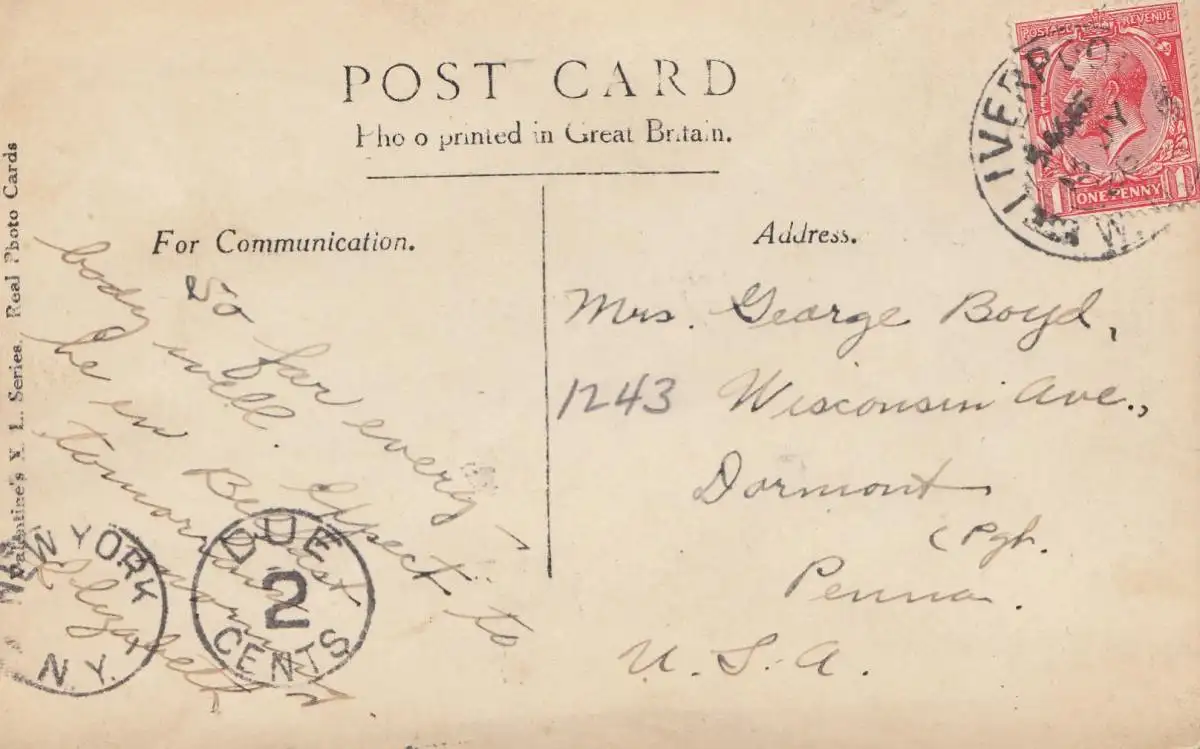 POST CARD
Photo printed in Great Britain.
For Communication.
Address.
So far every-
body well. Expect to
be in Belfast
tomorrow morning
Elizabeth
Mrs. George Boyd,
1243 Wisconsin Ave.,
Dormont
(Pgh.
Penna.
U. S. A.
Valentine's X. L. Series. Real Photo Cards
POSTAGE REVENUE
ONE PENNY
1 1
LIVERPOOL
MY
W.
NEW YORK
N.Y.
DUE
2
CENTS